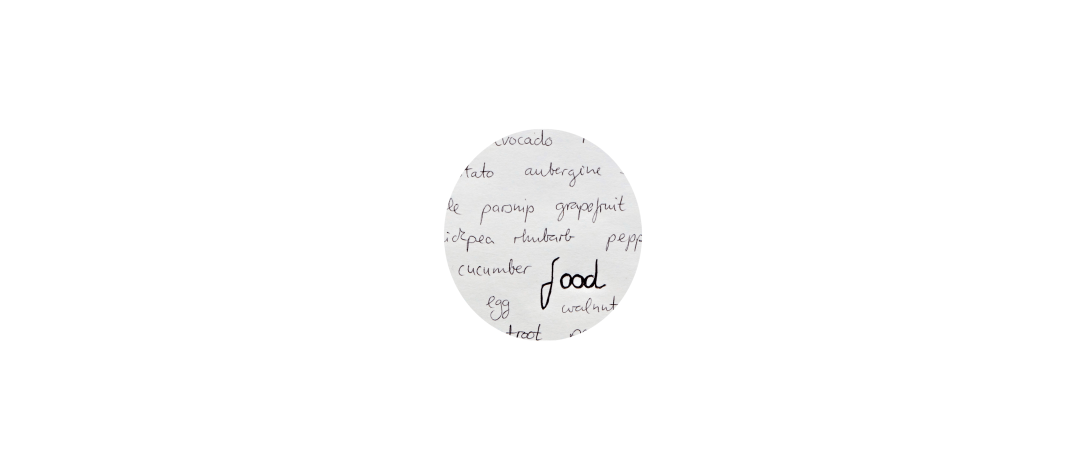 avocado
tato aubergine
le parsnip grapefruit
ickpea rhubarb pepp
cucumber food
egg walnut
troot